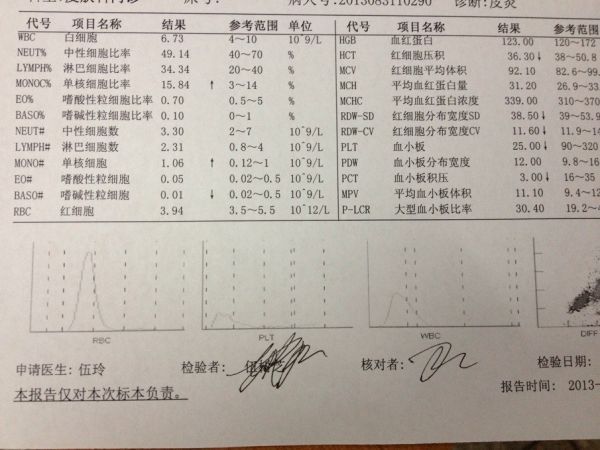 病人号:2013083110290 诊断:皮炎
代号 项目名称 结果 参考范围 单位 代号 项目名称 结果 参考范
WBC 白细胞 6.73 4~10 10^9/L HGB 血红蛋白 123.00 120~172
NEUT% 中性细胞比率 49.14 40~70 % HCT 红细胞压积 36.30↓ 38~50.8
LYMPH% 淋巴细胞比率 34.34 20~40 % MCV 红细胞平均体积 92.10 82.6~99.
MONOC% 单核细胞比率 15.84 ↑ 3~14 % MCH 平均血红蛋白量 31.20 26.9~33.
EO% 嗜酸性粒细胞比率 0.70 0.5~5 % MCHC 平均血红蛋白浓度 339.00 310~370
BASO% 嗜碱性粒细胞比率 0.10 0~1 % RDW-SD 红细胞分布宽度SD 38.50↓ 39~53.9
NEUT# 中性细胞数 3.30 2~7 10^9/L RDW-CV 红细胞分布宽度CV 11.60↓ 11.9~14
LYMPH# 淋巴细胞数 2.31 0.8~4 10^9/L PLT 血小板 25.00↓ 90~320
MONO# 单核细胞 1.06 ↑ 0.12~1 10^9/L PDW 血小板分布宽度 12.00 9.8~16
EO# 嗜酸性粒细胞 0.05 0.02~0.5 10^9/L PCT 血小板积压 3.00↓ 16~35
BASO# 嗜碱性粒细胞 0.01 ↓ 0.02~0.5 10^9/L MPV 平均血小板体积 11.10 9.4~12
RBC 红细胞 3.94 3.5~5.5 10^12/L P-LCR 大型血小板比率 30.40 19.2~4
RBC PLT WBC DIFF
申请医生: 伍玲 检验者: 核对者: 检验日期:
报告时间: 2013-
本报告仅对本次标本负责。